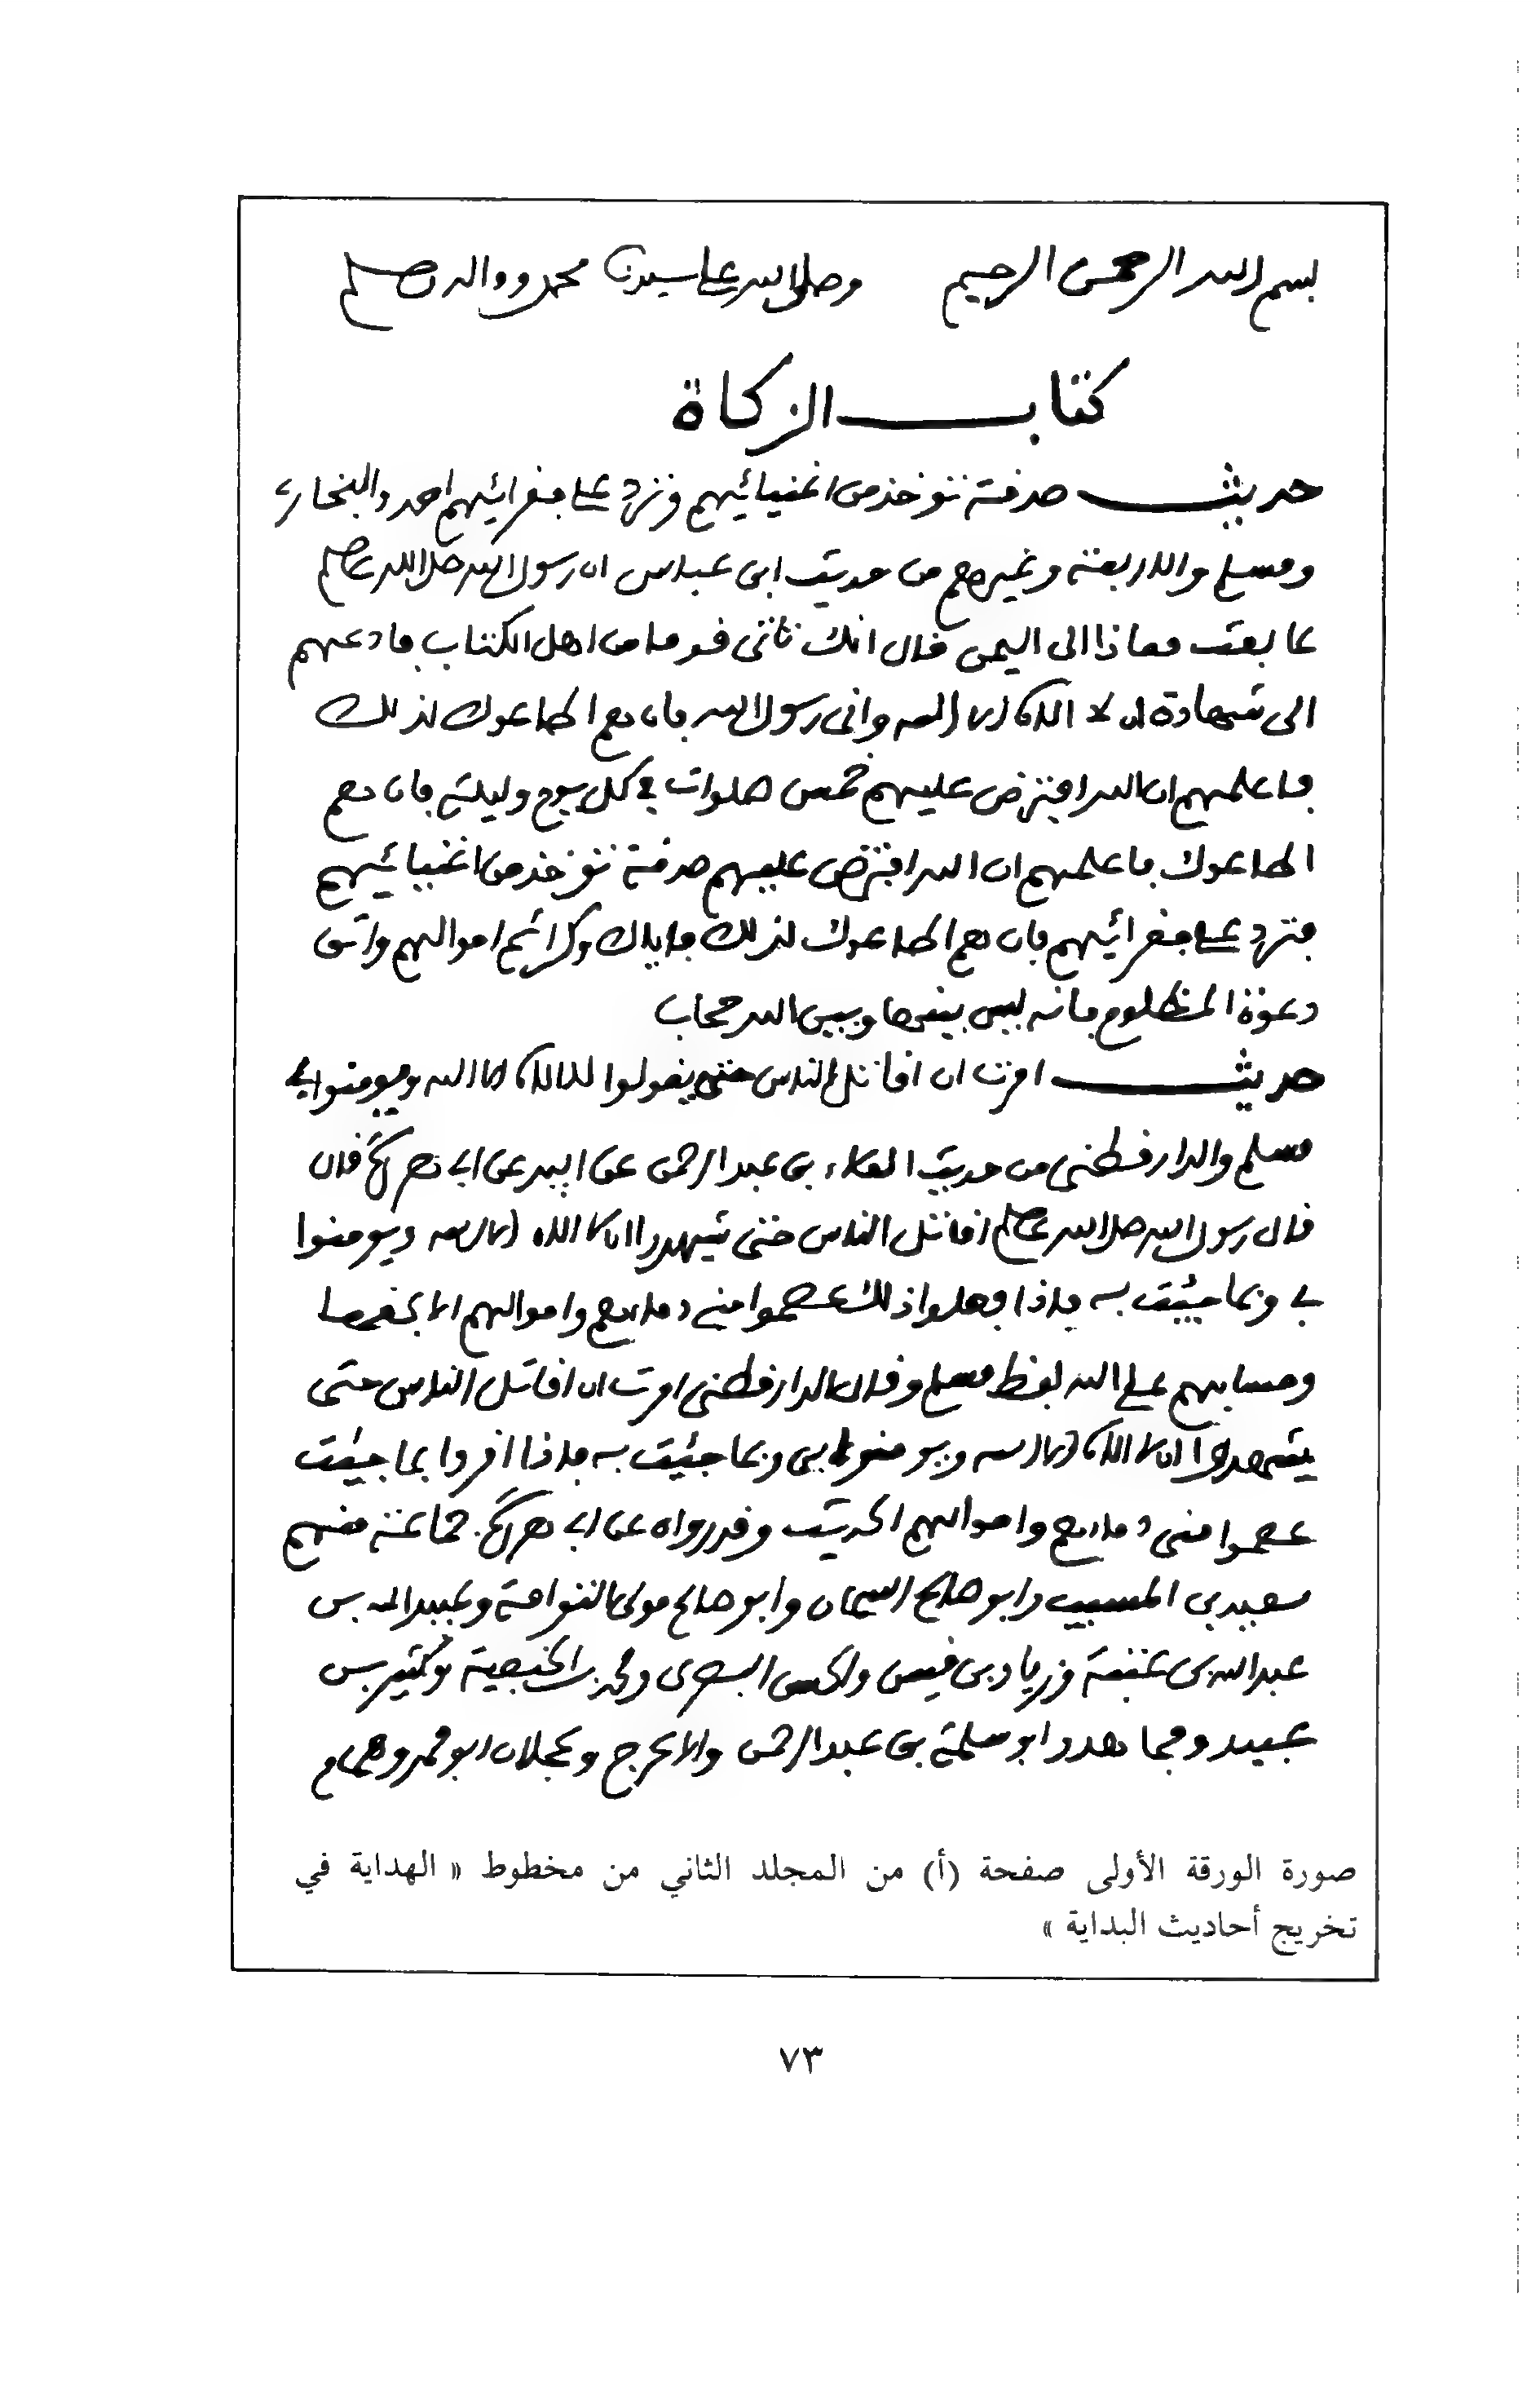 بسم الله الرحمن الرحيم وصلى الله على سيدنا محمد وواله وصحبه وسلم
كتاب الزكاة
حديث صدقة تؤخذ من اغنيائهم وترد على فقرائهم احمد والبخاري
ومسلم والاربعة وغيرهم من حديث ابن عباس ان رسول الله صلى الله عليه وسلم
لما بعث معاذا الى اليمن قال انك تاتي قوما من اهل الكتاب فادعهم
الى شهادة ان لا اله الا الله واني رسول الله فان هم اطاعوك لذلك
فاعلمهم ان الله افترض عليهم خمس صلوات في كل يوم وليلة فان هم
اطاعوك فاعلمهم ان الله افترض عليهم صدقة تؤخذ من اغنيائهم
فترد على فقرائهم فان هم اطاعوك لذلك فاياك وكرائم اموالهم واتق
دعوة المظلوم فانه ليس بينها وبين الله حجاب
حديث امرت ان اقاتل الناس حتى يقولوا لا اله الا الله ويومنوا بي
مسلم والدارقطني من حديث العلاء بن عبد الرحمن عن ابيه عن ابي هريرة قال
قال رسول الله صلى الله عليه وسلم اقاتل الناس حتى يشهدوا ان لا الله الا الله ويومنوا
بي وبما جئت به فاذا فعلوا ذلك عصموا مني دماءهم واموالهم الا بحقها
وحسابهم على الله لفظ مسلم وقال الدارقطني امرت ان اقاتل الناس حتى
يشهدوا ان لا اله الا الله ويومنوا بي وبما جئت به فاذا اقروا بما جئت
عصموا مني دماءهم واموالهم الحديث وقد رواه عن ابي هريرة جماعة منهم
سعيد بن المسيب وابو صالح السمان وابو صالح مولى التوامة وعبيد الله بن
عبد الله بن عتبة وزياد بن قيس والحسن البصري ومحمد بن الحنفية وكثير بن
عبيد ومجاهد وابو سلمة بن عبد الرحمن والاعرج وعجلان ابو محمد وهمام
صورة الورقة الأولى صفحة (أ) من المجلد الثاني من مخطوط « الهداية في
تخريج أحاديث البداية »
٧٣